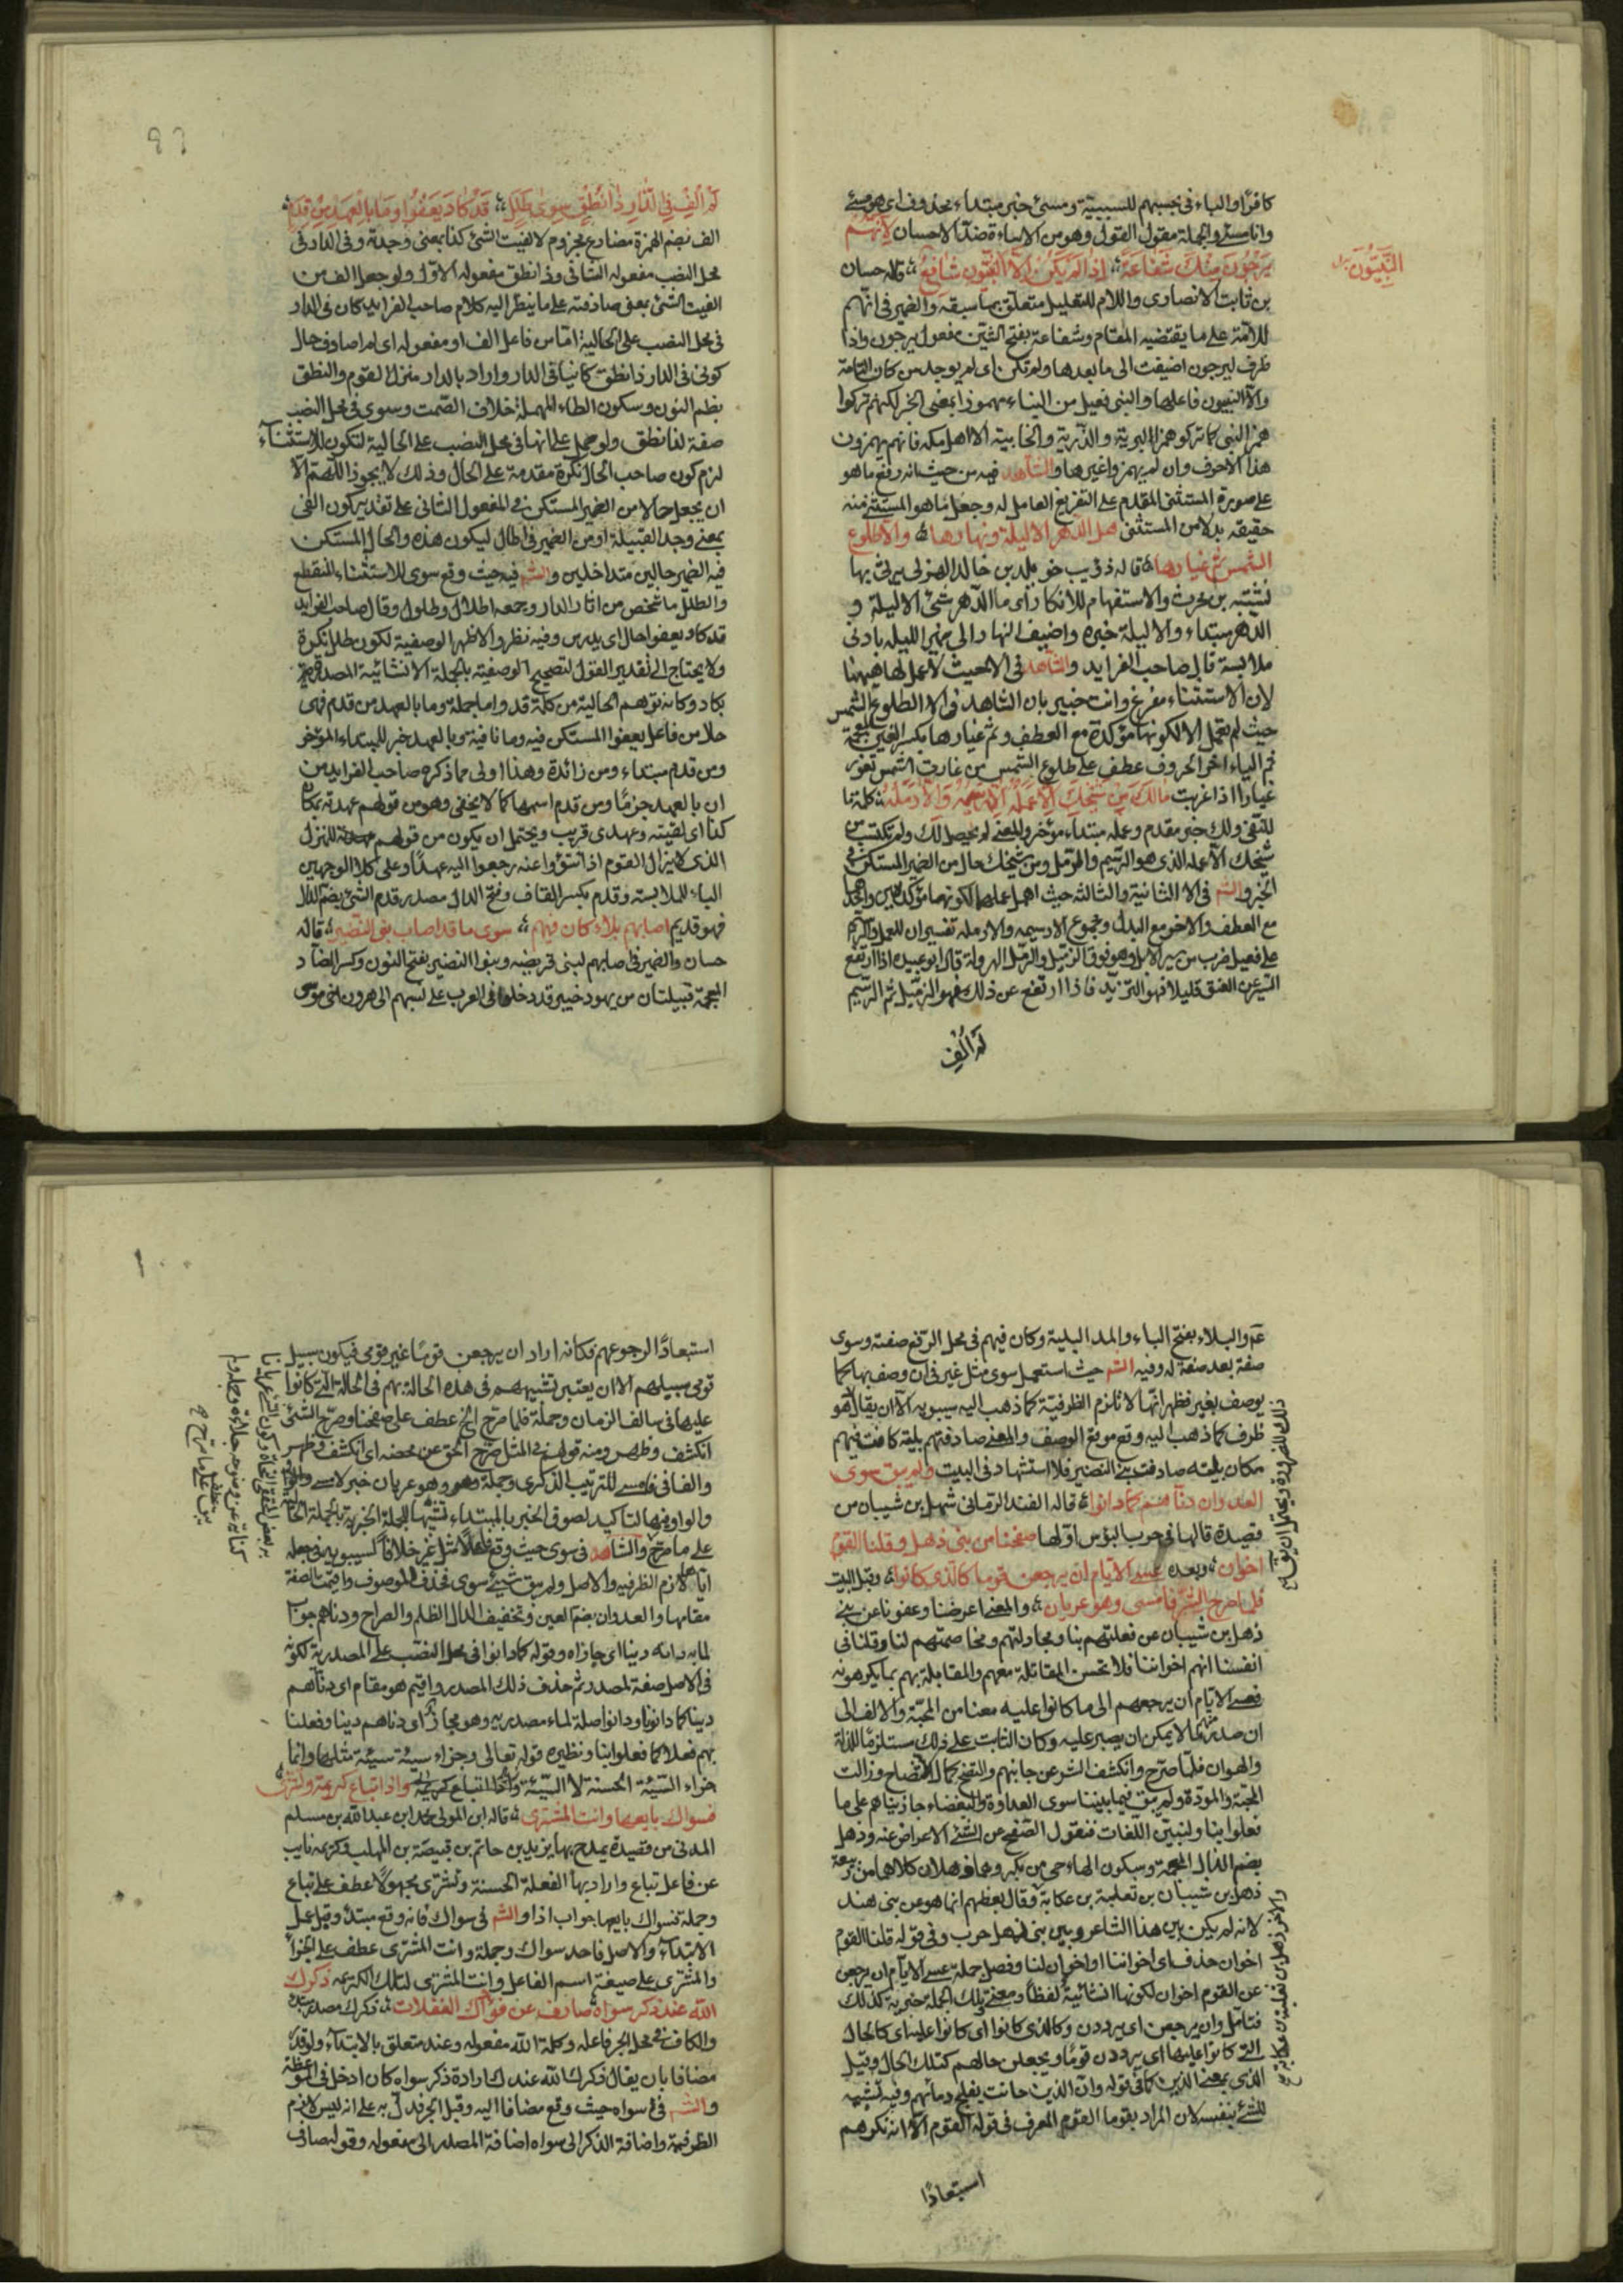 كافرًا والباء فى بحبهم للسببية ومسئ خبر مبتداء محذوف اى هو مسئ
وانا مسئ والجملة مقول القول وهو من الاساءة ضد الاحسان لانهم
النبيّون
يرجون منك شفاعة اذا لم يكن الا النبيون شافع قاله حسان
بن ثابت الانصارى واللام للتعليل متعلق بما سبقه والضمير فى انهم
للائمة على ما يقتضيه المقام وشفاعة بفتح الشين مفعول يرجون واذا
ظرف ليرجون اضيفت الى ما بعدها ولم تكن اى لم يوجد من كان التامة
والا النبيون فاعلها والنبى فعيل من النباء مهموز بمعنى الخبر لكنهم تركوا
همز النبى كما تركو همز البرية والذرية والخابية الا اهل مكه فانهم يهمزون
هذا الاحرف وان لم يهمزوا غيرها والشاهد فيه من حيث انه رفع ما هو
على صورة المستثنى المقدم على التفريغ العامل له وجعل ما هو المستثنى منه
حقيقه بدلا من المستثنى هل الدهر الا ليلة ونهارها والا طلوع
الشمس ثم غيارها قاله ذؤيب خويلد بن خالد الهزلى يرثى بها
نشيبه بن محرث والاستفهام للانكار اى ما الدهر شئ الا ليلة و
الدهر مبتداء والا ليلة خبره واضيف النهار الى ضمير الليله بادنى
ملابسة قال صاحب الفرايد والشاهد فى الا حيث لا عمل لها هيهنا
لان الاستثناء مفرغ وانت خبير بان الشاهد فى الا الطلوع الشمس
حيث لم تعمل الا لكونها مؤكدة مع العطف وثم غيارها بكسر الغين المعجمة
ثم الياء اخر الحروف عطف على طلوع الشمس من غارت الشمس تغور
غيارا اذا غربت مالك من شيخك الا عمله الا رسيمه والا رمله كلمة ما
للنفى ولك خبر مقدم وعمله مبتداء مؤخر والمعنى لم يحصل لك ولم تكتسب من
شيخك الا عمله الذى هو الرسيم والرمل ومن شيخك حال من الضمير المستكن فى
الخبر والشم فى الا الثانية والثالثه حيث اهمل عملهما لكونهما مؤكدتين واحدها
مع العطف والاخر مع البدل ومجموع الا رسيمه والا رمله تفسيران للعمل والرسيم
على فعيل ضرب من سير الابل وهو فوق الزميل والرمل الهرولة قال ابو عبيده اذا ارتفع
السير عن العنق قليلا فهو التزيد فاذا ارتفع عن ذلك فهو الزميل ثم الرسيم
لم الف
٩٩
لم الف فى الدار ذا نطق سوى طلل قد كاد يعفو وما بالعهد من قدم
الف بضم الهمزة مضارع مجزوم لالفيت الشئ كذا بمعنى وجدته وفى الدار فى
محل النصب مفعوله الثانى وذا نطق مفعوله الاول ولو جعل الف من
الفيت الشئ بمعنى صادفته على ما ينظر اليه كلام صاحب الفرايد كان فى الدار
فى محل النصب على الحالية اما من فاعل الف او مفعوله اى لم اصادف حال
كونى فى الدار ذا نطق كائنا فى الدار واراد بالدار منزل القوم والنطق
بضم النون وسكون الطاء المهملة خلاف الصمت وسوى فى محل النصب
صفة لذا نطق ولو حمل على انها فى محل النصب على الحالية لتكون للاستثناء
لزم كون صاحب الحال نكرة مقدمة على الحال وذلك لا يجوز اللهم الا
ان يجعل حالا من الضمير المستكن فى المفعول الثانى على تقدير كون الفى
بمعنى وجد القبيلة او من الضمير فى الحال ليكون هذه والحال المستكن
فيه الضمير حالين متداخلين والشم فيه حيث وقع سوى للاستثناء المنقطع
والطلل ما شخص من اثار الدار وجمعه اطلال وطلول وقال صاحب الفرايد
قد كاد يعفو حال اى يدرس وفيه نظر والاظهر الوصفية لكون طلل نكرة
ولا يحتاج الى تقدير القول لتصحيح الوصفية بالجملة الانشائية المصدرة
بكاد وكانه توهم الحالية من كلمة قد واما جملة وما بالعهد من قدم فهى
حال من فاعل يعفو المستكن فيه وما نافية وبالعهد خبر للمبتداء المؤخر
ومن قدم مبتداء ومن زائدة وهذا اولى مما ذكره صاحب الفرايد من
ان بالعهد خبر ما ومن قدم اسمها كما لا يخفى وهو من قولهم عهدته بمكان
كذا اى لقيته وعهدى قريب ويحتمل ان يكون من قولهم عهدة للمنزل
الذى لا يزال القوم اذا نتؤوا عنه رجعوا اليه عهدًا وعلى كلا الوجهين
الباء للملابسة وقدم بكسر القاف وفتح الدال مصدر قدم الشئ بضم الدال
فهو قديم اصابهم بلاء كان فيهم سوى ما قد اصاب بنى النضير قاله
حسان والضمير فى اصابهم لبنى قريضه وبنوا النضير بفتح النون وكسر الضاد
المعجمة قبيلتان من يهود خيبر قد دخلوا فى العرب على نسبهم الى هرون اخى موسى
عم والبلاء بفتح الباء والمد البلية وكان فيهم فى محل الرفع صفته وسوى
صفة بعد صفة له وفيه الشم حيث استعمل سوى مثل غير فى ان وصف بها كما
يوصف بغير فظهر انها لا تلزم الظرفية كما ذهب اليه سيبويه الا ان يقال هو
ظرف كما ذهب اليه وقع موقع الوصف والمعنى صادفتهم بلية كانت فيهم
مكان بلية صادفت بنى النضير فلا استشهاد فى البيت ولم يبق سوى
العدوان دناهم كما دانوا قاله الفند الزمانى شهل بن شيبان من
قصيدة قالها فى حرب البؤس اولها صفحنا من بنى ذهل وقلنا القوم
اخوان وبعده عسى الايام ان يرجعن قوما كالذى كانوا وقبل البيت
فلما صرح الشر فامسى وهو عريان والمعنى اعرضنا وعفونا عن بنى
ذهل بن شيبان عن فعلتهم بنا ومجادلتهم ومخاصمتهم لنا وقلنا فى
انفسنا انهم اخواننا فلا تحسن المقاتلة معهم والمقابلة بهم بما يكرهونه
فعسى الايام ان يرجعهم الى ما كانوا عليه معنا من المحبة والالف الى
ان صدر منهم ما لا يمكن ان يصبر عليه وكان الثابت على ذلك مستلزما للذلة
والهوان فلما صرح وانكشف الشر عن جانبهم واتضح كمال الاتضاح وزالت
المحبة والمودة ولم يبق فيما بيننا سوى العداوة والبغضاء جازيناهم على ما
فعلوا بنا ولنبين اللغات فنقول الصفح عن الشئ الاعراض عنه وذهل
بضم الذال المعجمة وسكون الهاء حى من بكر وهما ذهلان كلاهما من ربيعة
ذهل بن شيبان بن ثعلبة بن عكابة وقال بعضهم انما هو عن بنى هند
لانه لم يكن بين هذا الشاعر وبين بنى ذهل حرب وفى قوله قلنا القوم
اخوان حذف اى اخواننا او اخوان لنا وفصل جملة عسى الايام ان يرجعن
عن القوم اخوان لكونها انشائية لفظًا ومعنى وتلك الجملة خبرية كذلك
فتامل وان يرجعن اى يرددن وكالذى كانوا اى كانوا عليه اى كالحال
التى كانوا عليها اى يرددن قومًا ويجعلن حالهم كتلك الحال وقيل
الذى بمعنى الذين كما فى قوله وان الذين حانت بفلج دماؤهم وفيه تشبيه
للشئ بنفسه لان المراد بقوما القوم المعرف فى قوله القوم الا انه نكرهم
استبعادًا
والاخر ذهل بن ثعلبة بن عكابة
١٠٠
استبعادًا لرجوعهم فكانه اراد ان يرجعن قومًا غير قومى فيكون سبيل
قومى سبيلهم الا ان يعتبر تشبيههم فى هذه الحالة بهم فى الحالة التى كانوا
عليها فى سالف الزمان وجملة فلما صرح الخ عطف على صفحنا وصرح الشئ
انكشف وظهر ومنه قولهم فى المثل صرح الحق عن محضه اى انكشف وظهر
والفا فى فامسى للترتيب الذكرى وجملة وهو عريان خبر لامسى
والواو فيها لتاكيد لصوق الخبر بالمبتداء تشبيها للجملة الخبرية بالجملة الحالية
على ما صرح والشاهد فى سوى حيث وقع فاعلًا مثل غير خلافا لسيبويه فى جعله
اياها لازم الظرفيه والاصل ولم يبق شئ سوى فحذف الموصوف واقيمت الصفة
مقامها والعدوان بضم العين وتخفيف الدال الظلم والصراح ودناهم جواب
لما به دانه دينا اى جازاه وقوله كما دانوا فى محل النصب على المصدرية لكونه
فى الاصل صفة لمصدر ثم حذف ذلك المصدر واقيم هو مقام اى دناهم
دينا كما دانونا ودانوا صلة لماء مصدريه وهو مجاز اى دناهم دينا وفعلنا
بهم فعلا كما فعلوا بنا ونظيره قوله تعالى وجزاء سيئة سيئة مثلها وانما
جزاء السيئة الحسنة لا السيئة واذا تباع كريمة او تشترى
فسواك بايعها وانت المشترى قاله ابن المولى محمد ابن عبد الله بن مسلم
المدنى من قصيدة يمدح بها يزيد بن حاتم بن قبيصة بن المهلب وكريمه نايب
عن فاعل تباع واراد بها الفعلة الحسنة وتشترى مجهولا عطف على تباع
وجملة فسواك بايعها جواب اذا والشم فى سواك فانه وقع مبتدأ وقيل عمل
الابتداء والاصل فاحد سواك وجملة وانت المشترى عطف على الجزاء
والمشترى على صيغة اسم الفاعل وانت المشترى لتلك الكريمه ذكرك
الله عند ذكر سواه صارف عن فؤادك الغفلات ذكرك مصدر مبتدا
والكاف فى محل الجر فاعله وكلمة الله مفعوله وعند متعلق بالابتداء ولو قدر
مضافا بان يقال ذكرك الله عند ارادة ذكر سواه كان ادخل فى الموعظة
والشم فى سواه حيث وقع مضافا اليه وقبل الجر فدل به على انه ليس لازم
الظرفية واضافة الذكر الى سواه اضافة المصدر الى مفعوله وقوله صارف